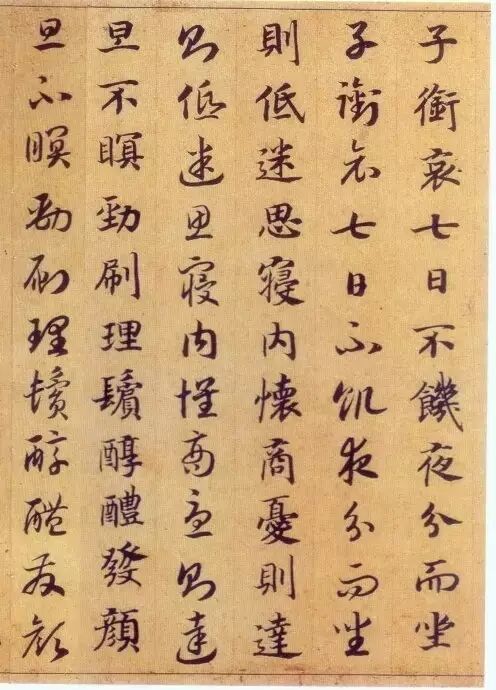 子銜哀七日不饑夜分而坐
子銜哀七日不飢夜分而坐
則低迷思寢内懷商憂則達
則低迷思寢内懷商憂則達
旦不瞑勁刷理鬢醇醴發顔
旦不瞑勁刷理鬢醇醴發顔